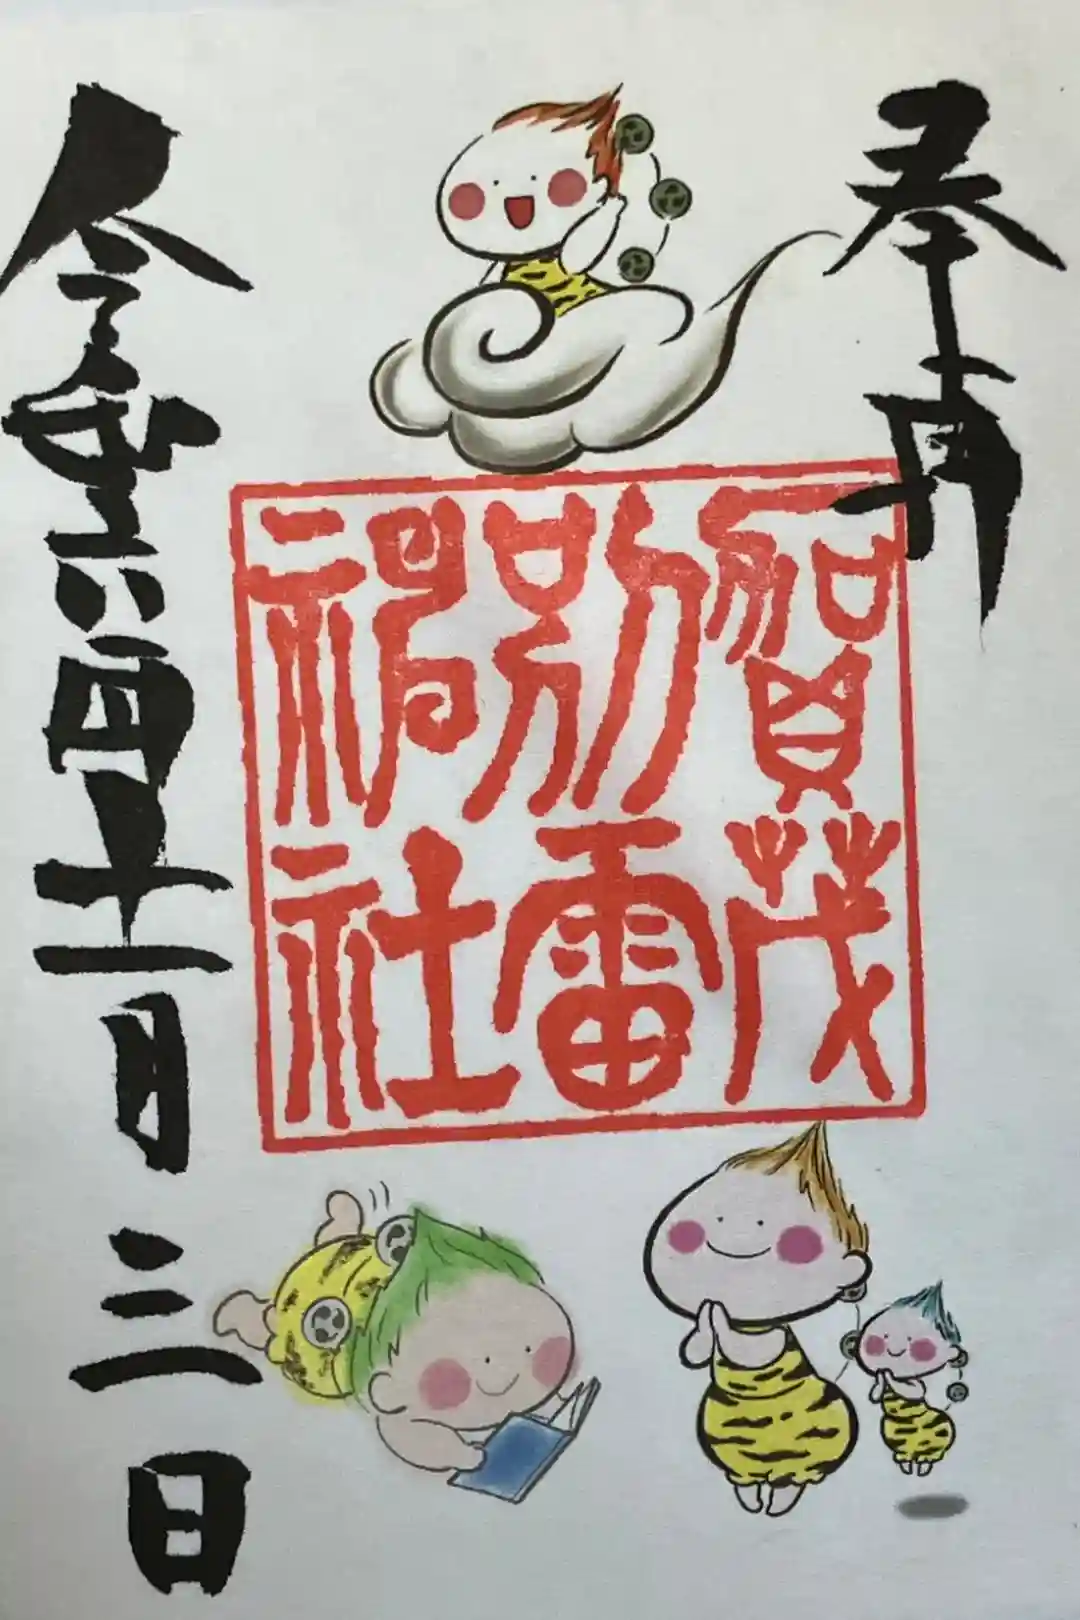 奉拝
賀茂
別雷
神社
令 四十一月三日